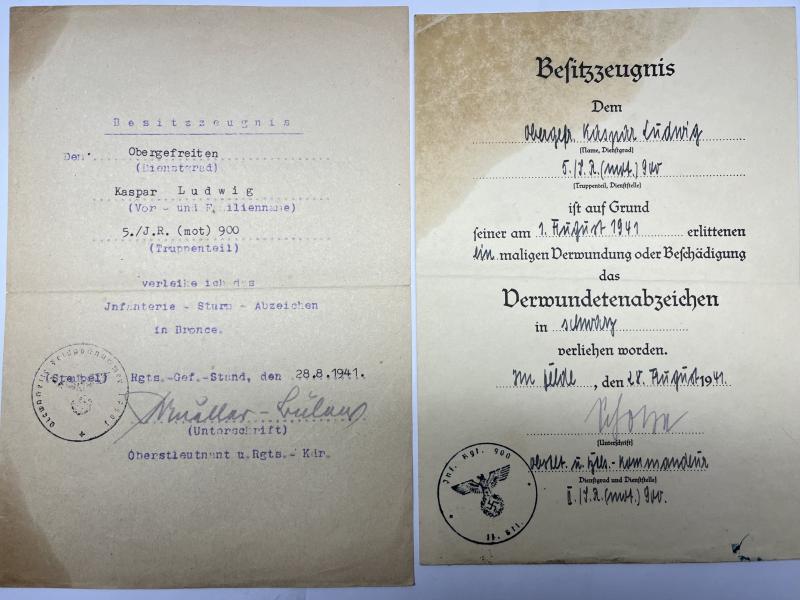 Besitzzeugnis
Dem Obergefreiten
(Dienstgrad)
Kaspar Ludwig
(Vor - und Familienname)
5./J.R. (mot) 900
(Truppenteil)
verleihe ich das
Jnfanterie - Sturm - Abzeichen
in Bronce.
(Stempel) Rgts.-Gef.-Stand, den 28.8.1941.
Mueller-Bülow
(Unterschrift)
Oberstleutnant u.Rgts.- Kdr.
Besitzzeugnis
Dem
Obergefr. Kaspar Ludwig
(Name, Dienstgrad)
5./J.R.(mot.) 900
(Truppenteil, Dienststelle)
ist auf Grund
seiner am 1. August 1941 erlittenen
ein maligen Verwundung oder Beschädigung
das
Verwundetenabzeichen
in schwarz
verliehen worden.
Im Felde, den 28. August 1941.
(Unterschrift)
Oberstlt. u. Btls.-Kommandeur
Dienstgrad und Dienststelle)
II./J.R.(mot.) 900.
Inf. Rgt. 900
II. Btl.